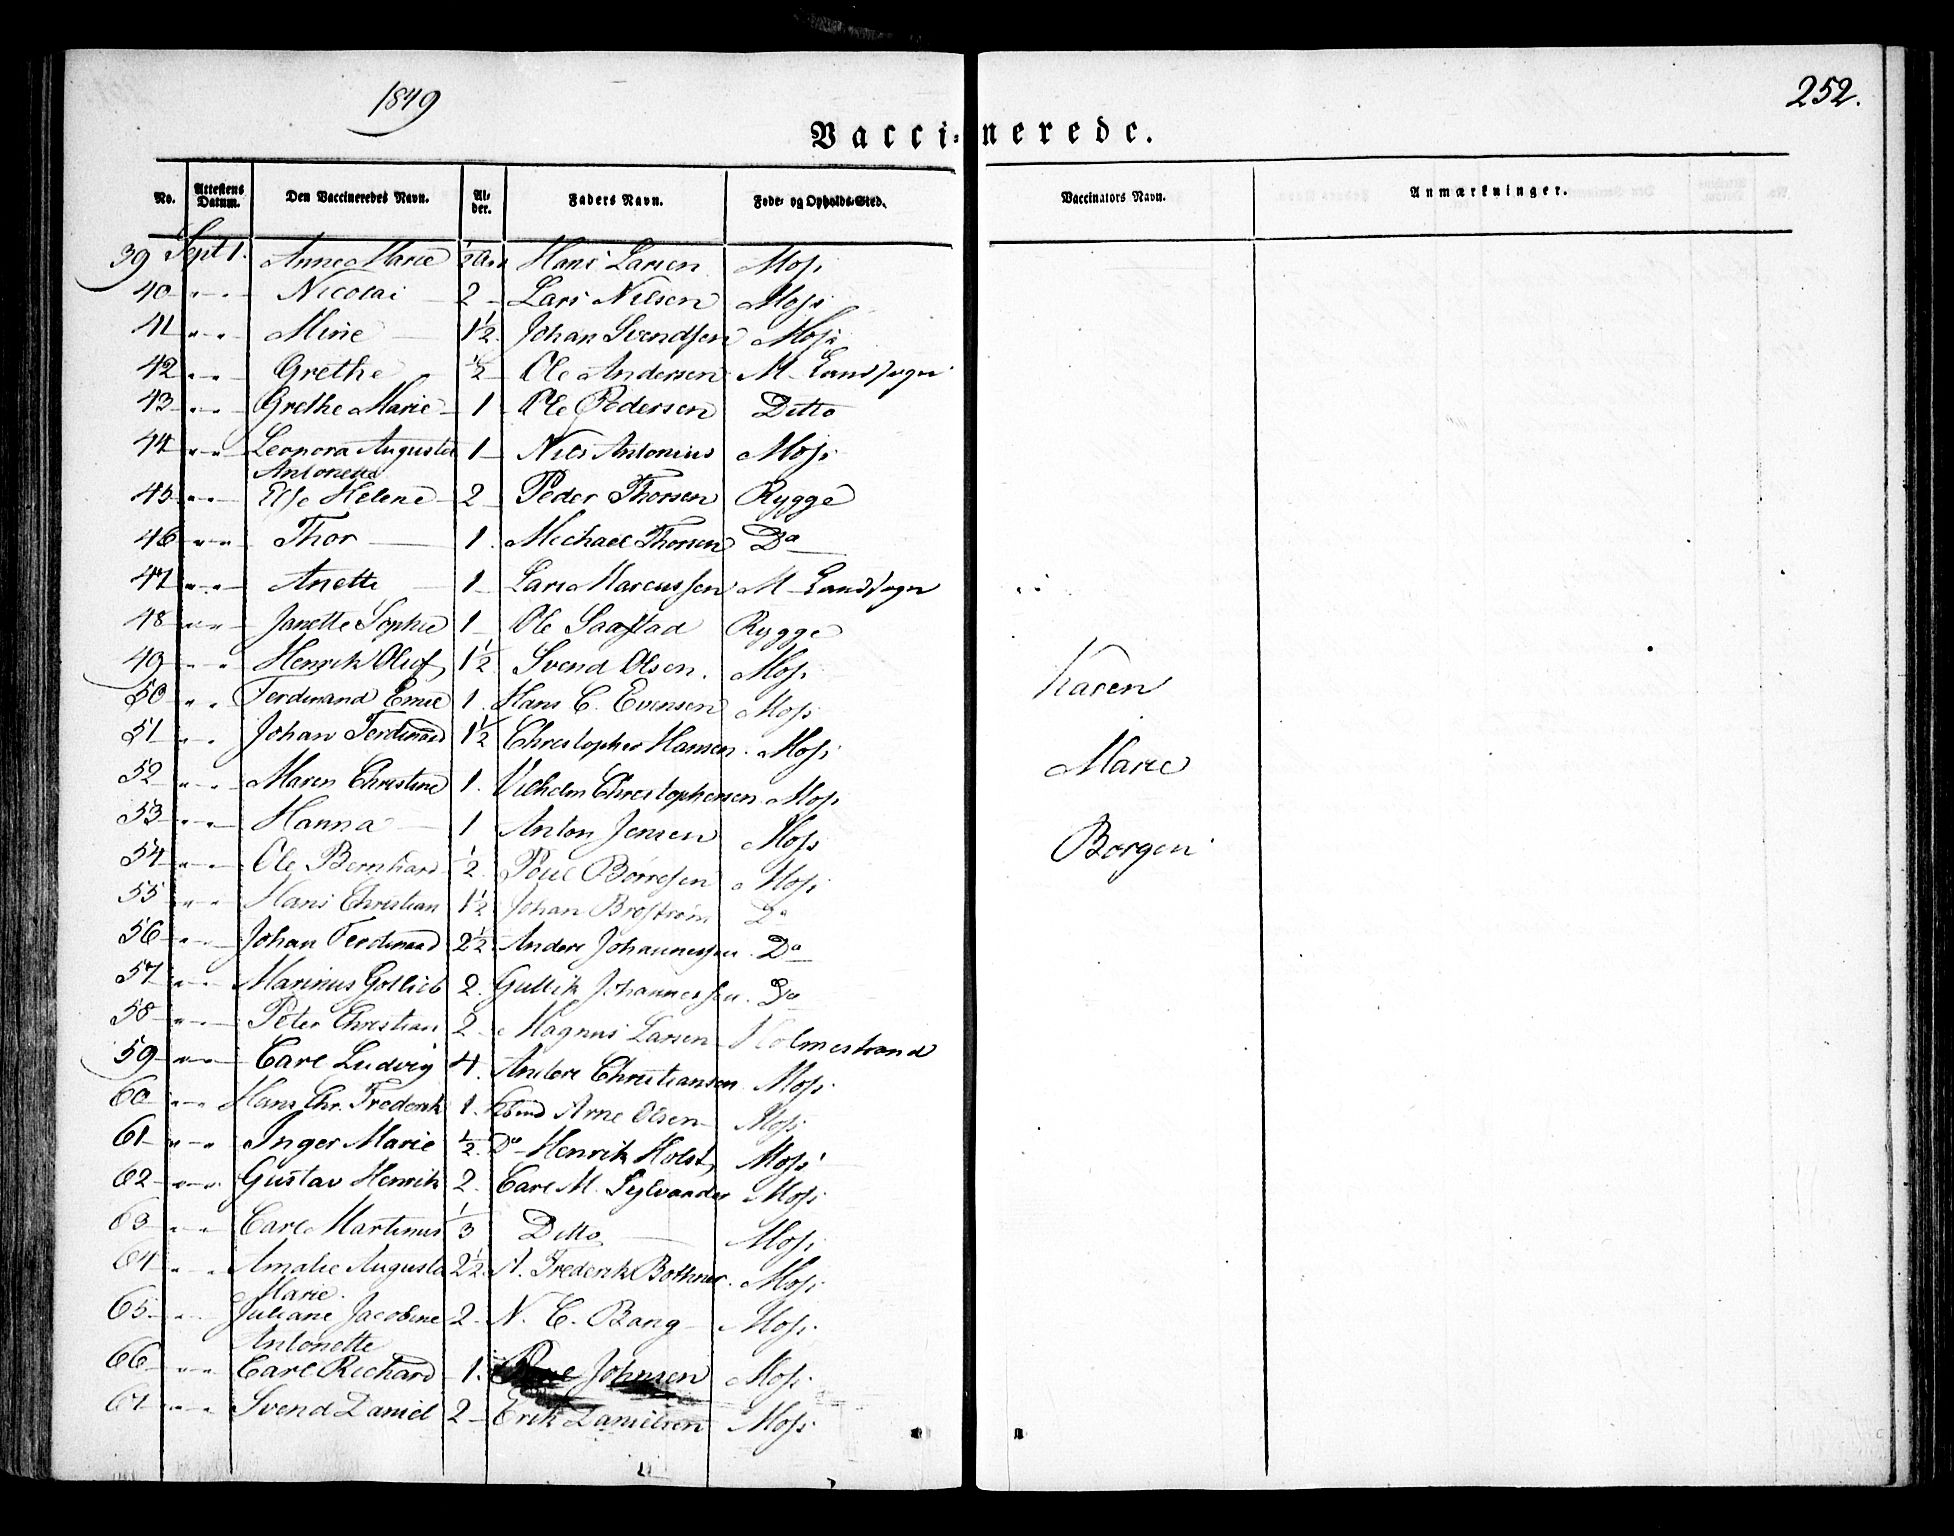 1849
252.
Vaccinerede.
No. Attestens Datum. Den Vaccineredes Navn. Alder. Faders Navn. Føde- og Opholds-Sted. Vaccinators Navn. Anmærkninger.
39 Sept 1. Anne Marie ½ Hans Larsen Moss
40 " " Nicolai 2 Lars Nilsen Moss
41 " " Mine 1½ Johan Svendsen Moss
42 " " Grethe ½ Ole Andersen M Landsogn
43 " " Grethe Marie 1 Ole Pedersen Ditto
44 " " Leonora Augusta 1 Nils Antonius Moss
Antonette
45 " " Else Helene 2 Peder Thorsen Rygge
46 " " Thor 1. Michael Thorsen Do
47 " " Anette 1 Lars Marcussen M Landsogn
48 " " Janette Sophie 1 Ole Saastad Rygge
49 " " Henrik Oluf 1½ Svend Olsen. Moss
50 " " Ferdinand Emil 1. Hans C. Evensen Moss
Karen
51 " " Johan Ferdinand 1½ Christopher Hansen. Moss
Marie
52 " " Maren Christine 1. Vilhelm Christophersen Moss
53 " " Hanna 1 Anton Jensen Moss
Borgen
54 " " Ole Bernhard ½ Poul Børresen Moss
55 " " Hans Christian 1½ Johan Brostrøm Do
56 " " Johan Ferdinand 2½ Anders Johannessen. Do
57 " " Marinus Gotlieb 2. Gullik Johannessen. Do
58 " " Peter Christian 2 Magnus Larsen Holmestrand
59 " " Carl Ludvig 4. Anders Christiansen Moss
60 " " Hans Chr. Frederik 1. Arne Olsen Moss
61 " " Inger Marie ½. Do Henrik Holst Moss
62 " " Gustav Henrik 2. Carl M. Sylvander Moss
63 " " Carl Martinus ⅓ Ditto Moss
64 " " Amalie Augusta 2½ A. Frederik Bothner. Moss
Marie.
65 " " Juliane Jacobine 2 N. C. Bang Moss
Antonette
66 " " Carl Richard 1. Johnsen Moss
67 " " Svend Daniel 2 Erik Danielsen Moss